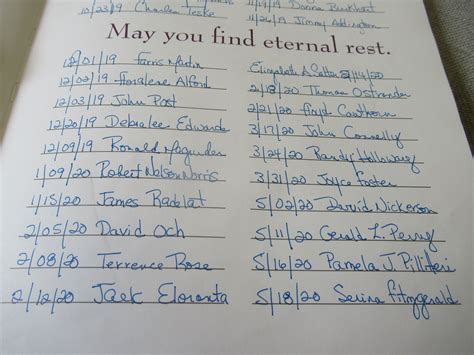 10/23/19 Charles Teske
Donna Burkhart
11/26/19 Jimmy Addington
May you find eternal rest.
12/01/19 Farris Martin
12/02/19 Floralene Alford
12/03/19 John Post
12/20/19 Debralee Edwards
12/09/19 Ronald Maguder
1/09/20 Robert Nelson Norris
1/15/20 James Radelat
2/05/20 David Och
2/08/20 Terrence Rose
2/12/20 Jack Eloranta
Elizabeth A Salter 2/14/20
2/18/20 Thomas Ostrander
2/21/20 Floyd Cawthorn
3/17/20 John Connelly
3/24/20 Randy Holloway
3/31/20 Joyce Foster
5/02/20 David Nickerson
5/11/20 Gerald L. Perry
5/16/20 Pamela J. Pillitteri
5/18/20 Serina Fitzgerald